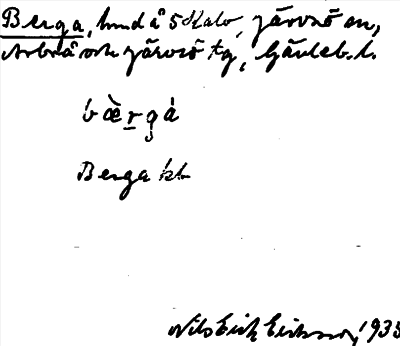 Berga, hmd å 5 Kalv, Järvsö sn,
Arbrå och Järvsö tg, Gävleb. l.
b æ̀ r g á
Berga kb
Nils Erik Eriksson, 1935